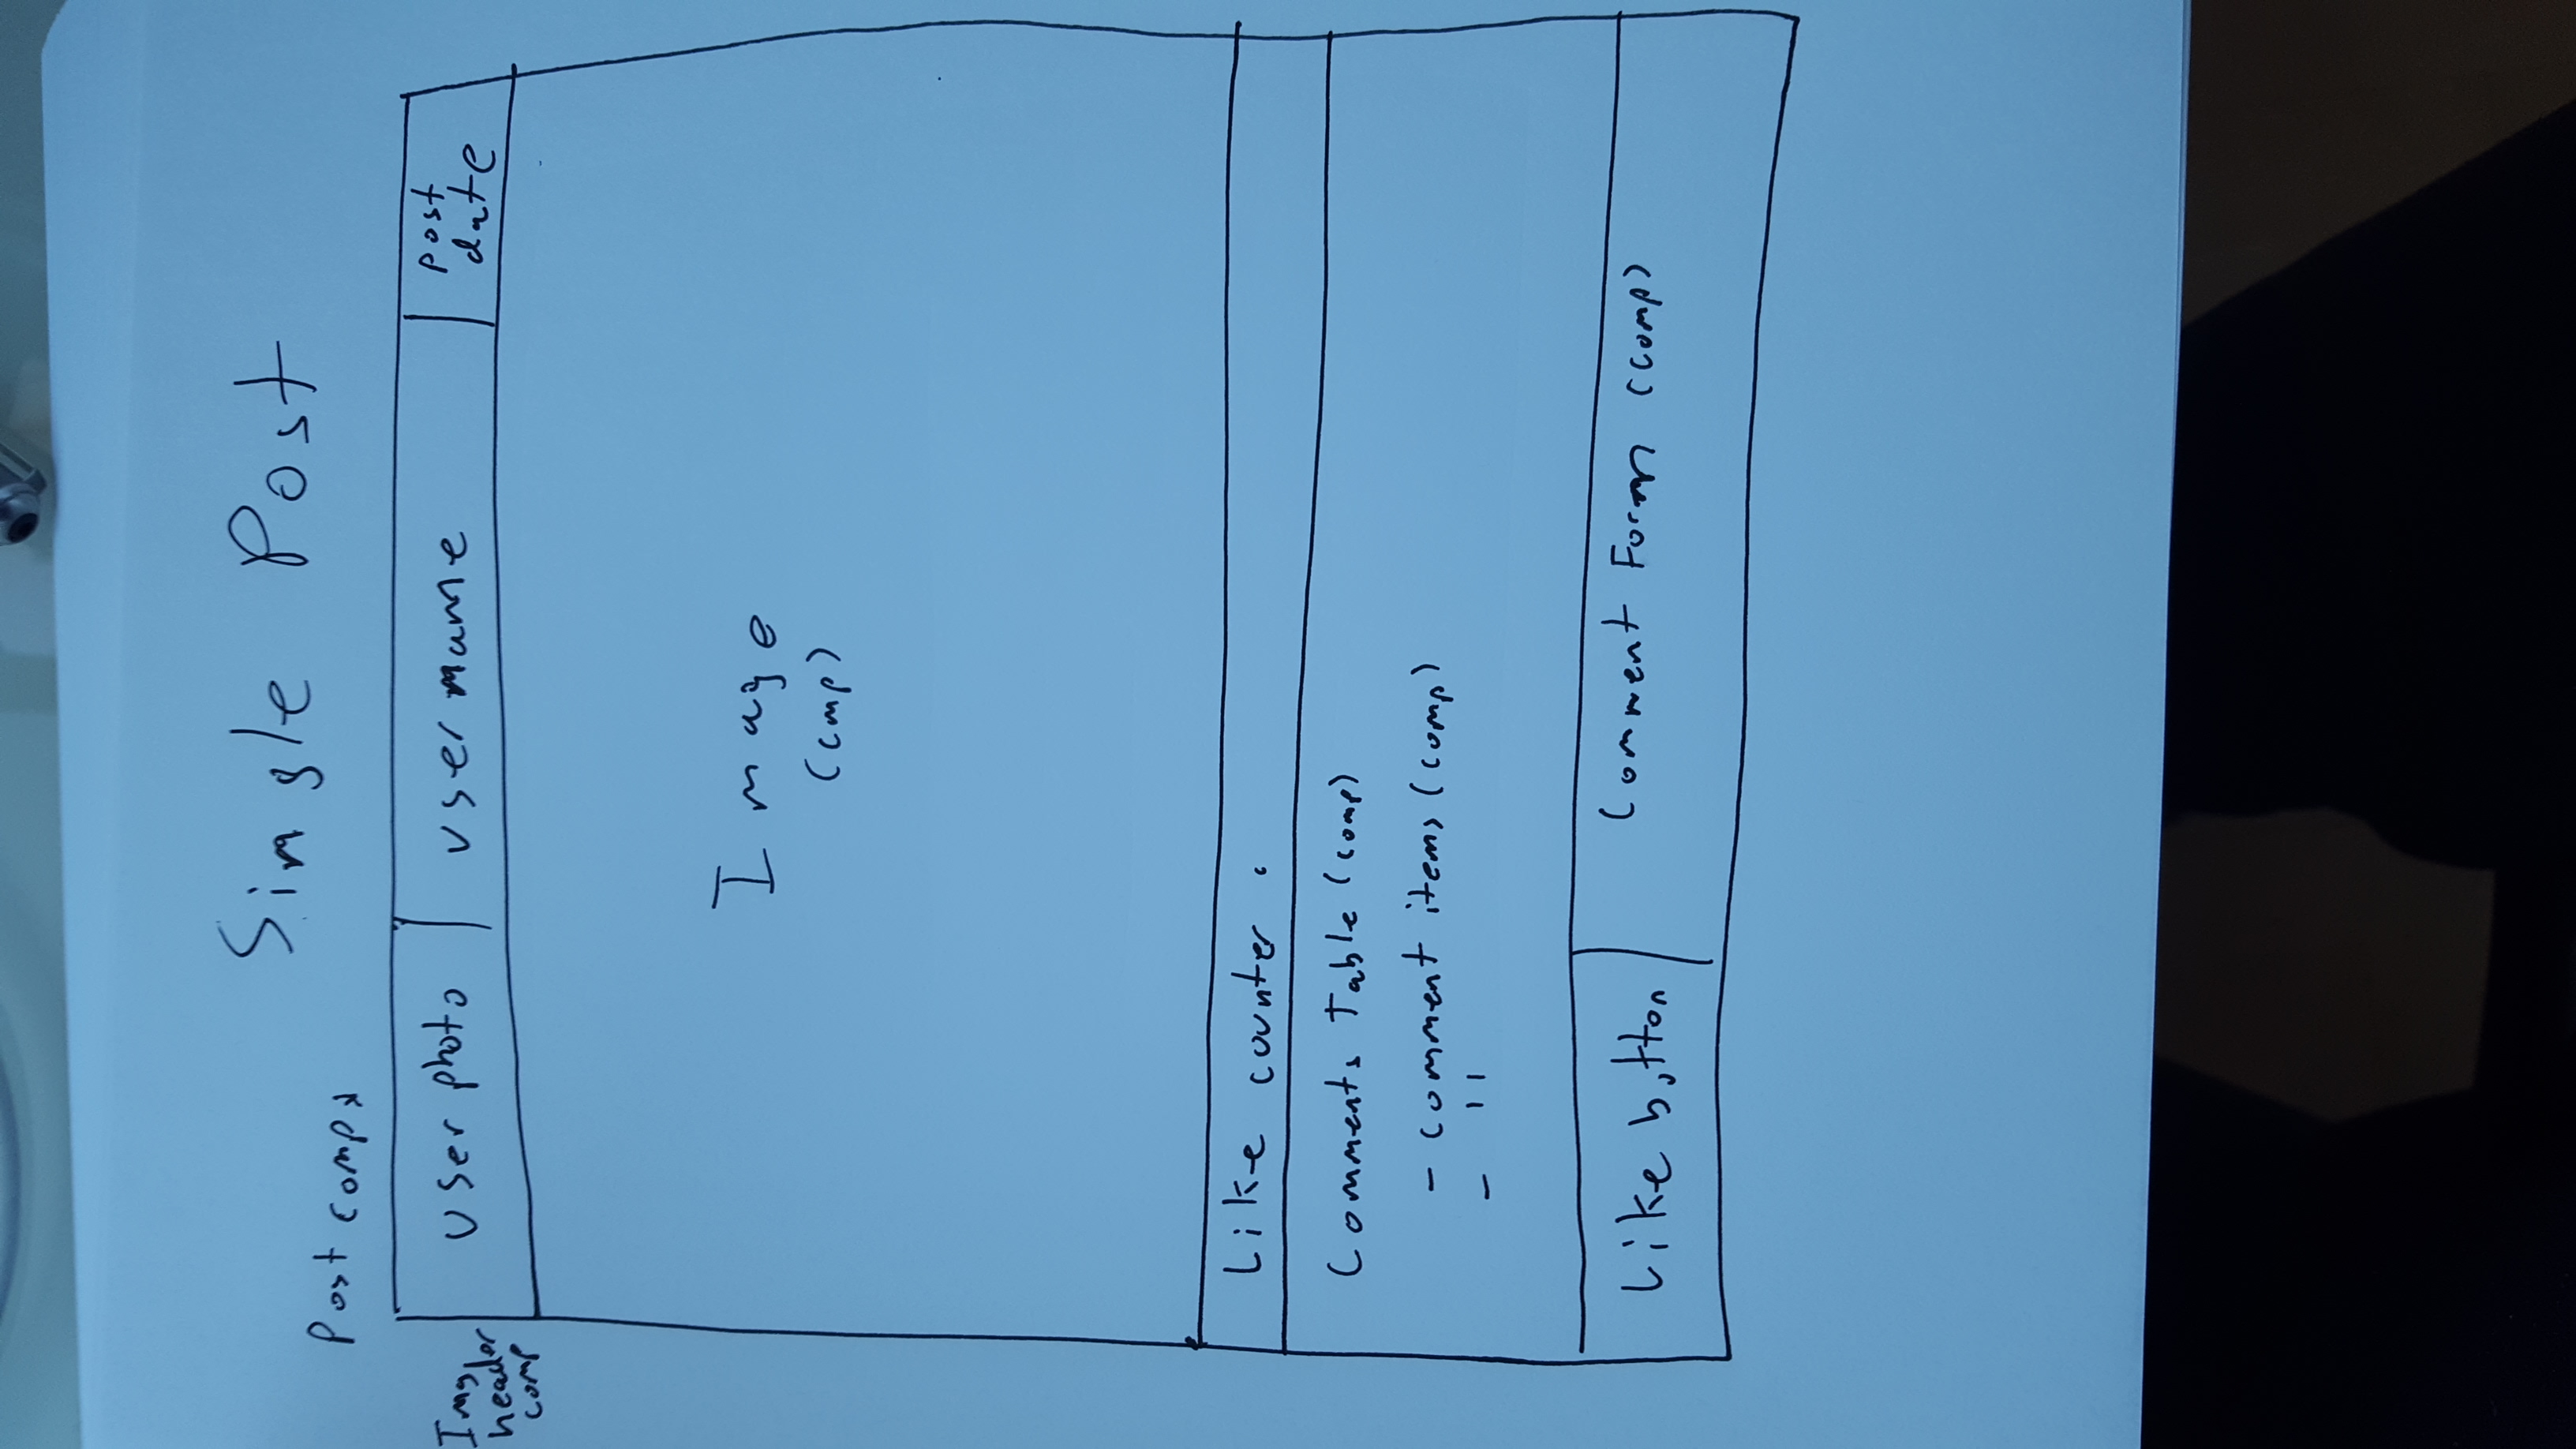 Single Post
Post comp
Img header comp
user photo
username
post date
Image
(cmp)
Like counter
Comments Table (comp)
- comment items (comp)
- "
Like button
Comment Form (comp)